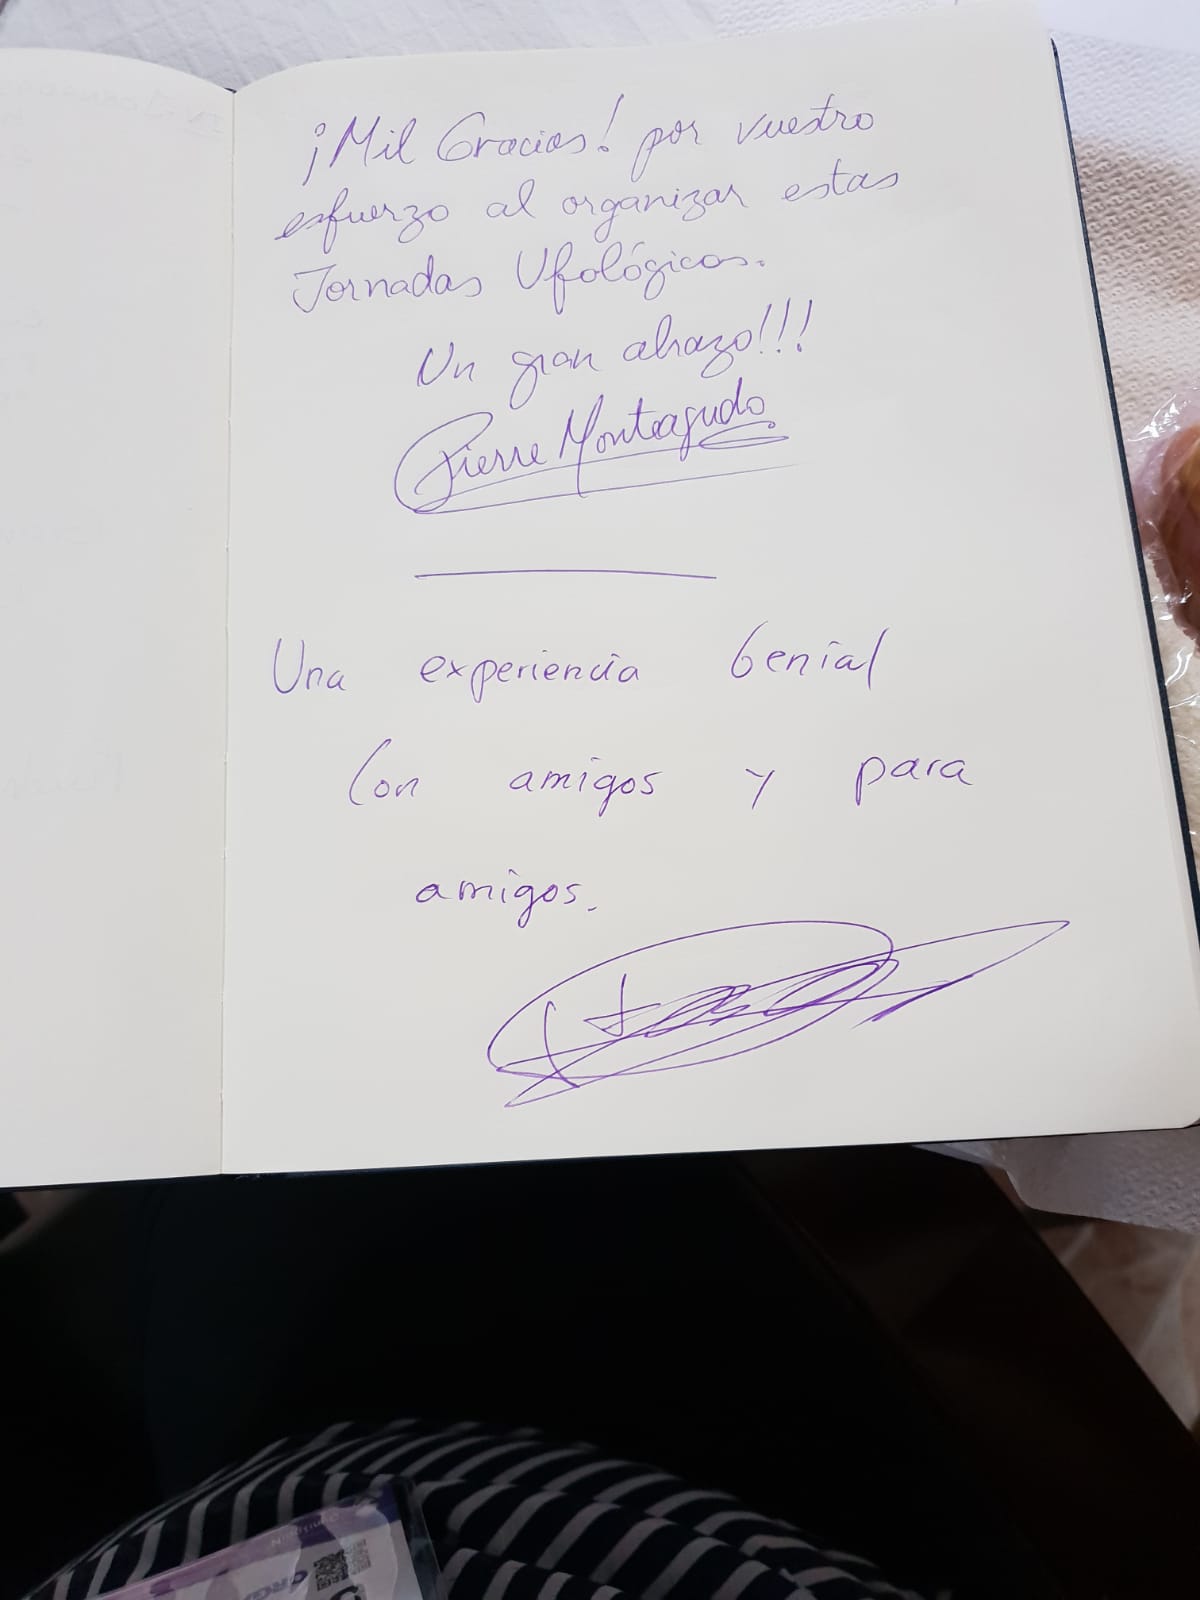 ¡Mil Gracias! por vuestro
esfuerzo al organizar estas
Jornadas Ufológicas.
Un gran abrazo!!!
Pierre Monteagudo
Una experiencia Genial
Con amigos y para
amigos.